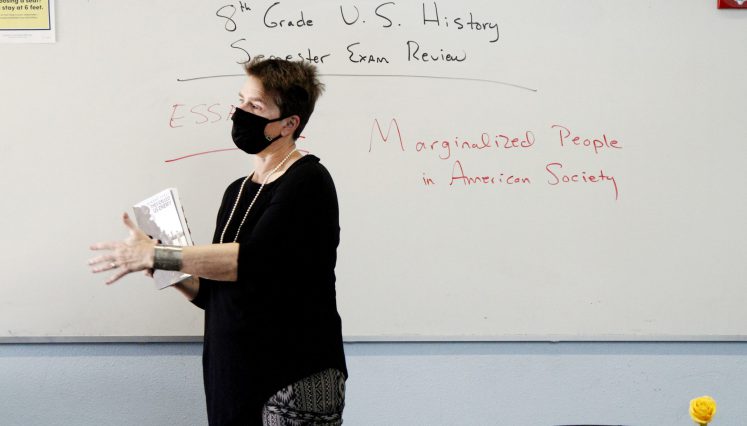 stay at 6 feet.
8th Grade U.S. History
Semester Exam Review
Marginalized People
in American Society